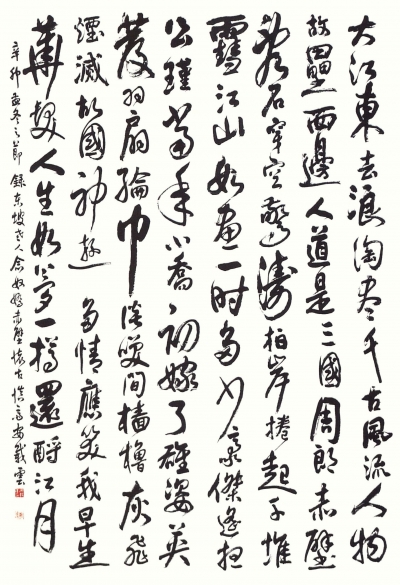 大江東去浪淘盡千古風流人物
故壘西邊人道是三國周郎赤壁
亂石穿空驚濤拍岸捲起千堆
雪江山如畫一時多少豪傑遙想
公瑾當年小喬初嫁了雄姿英
發羽扇綸巾談笑間檣櫓灰飛
煙滅故國神遊多情應笑我早生
華髮人生如夢一樽還酹江月
辛卯孟冬之節錄東坡老人念奴嬌赤壁懷古高安戴雲